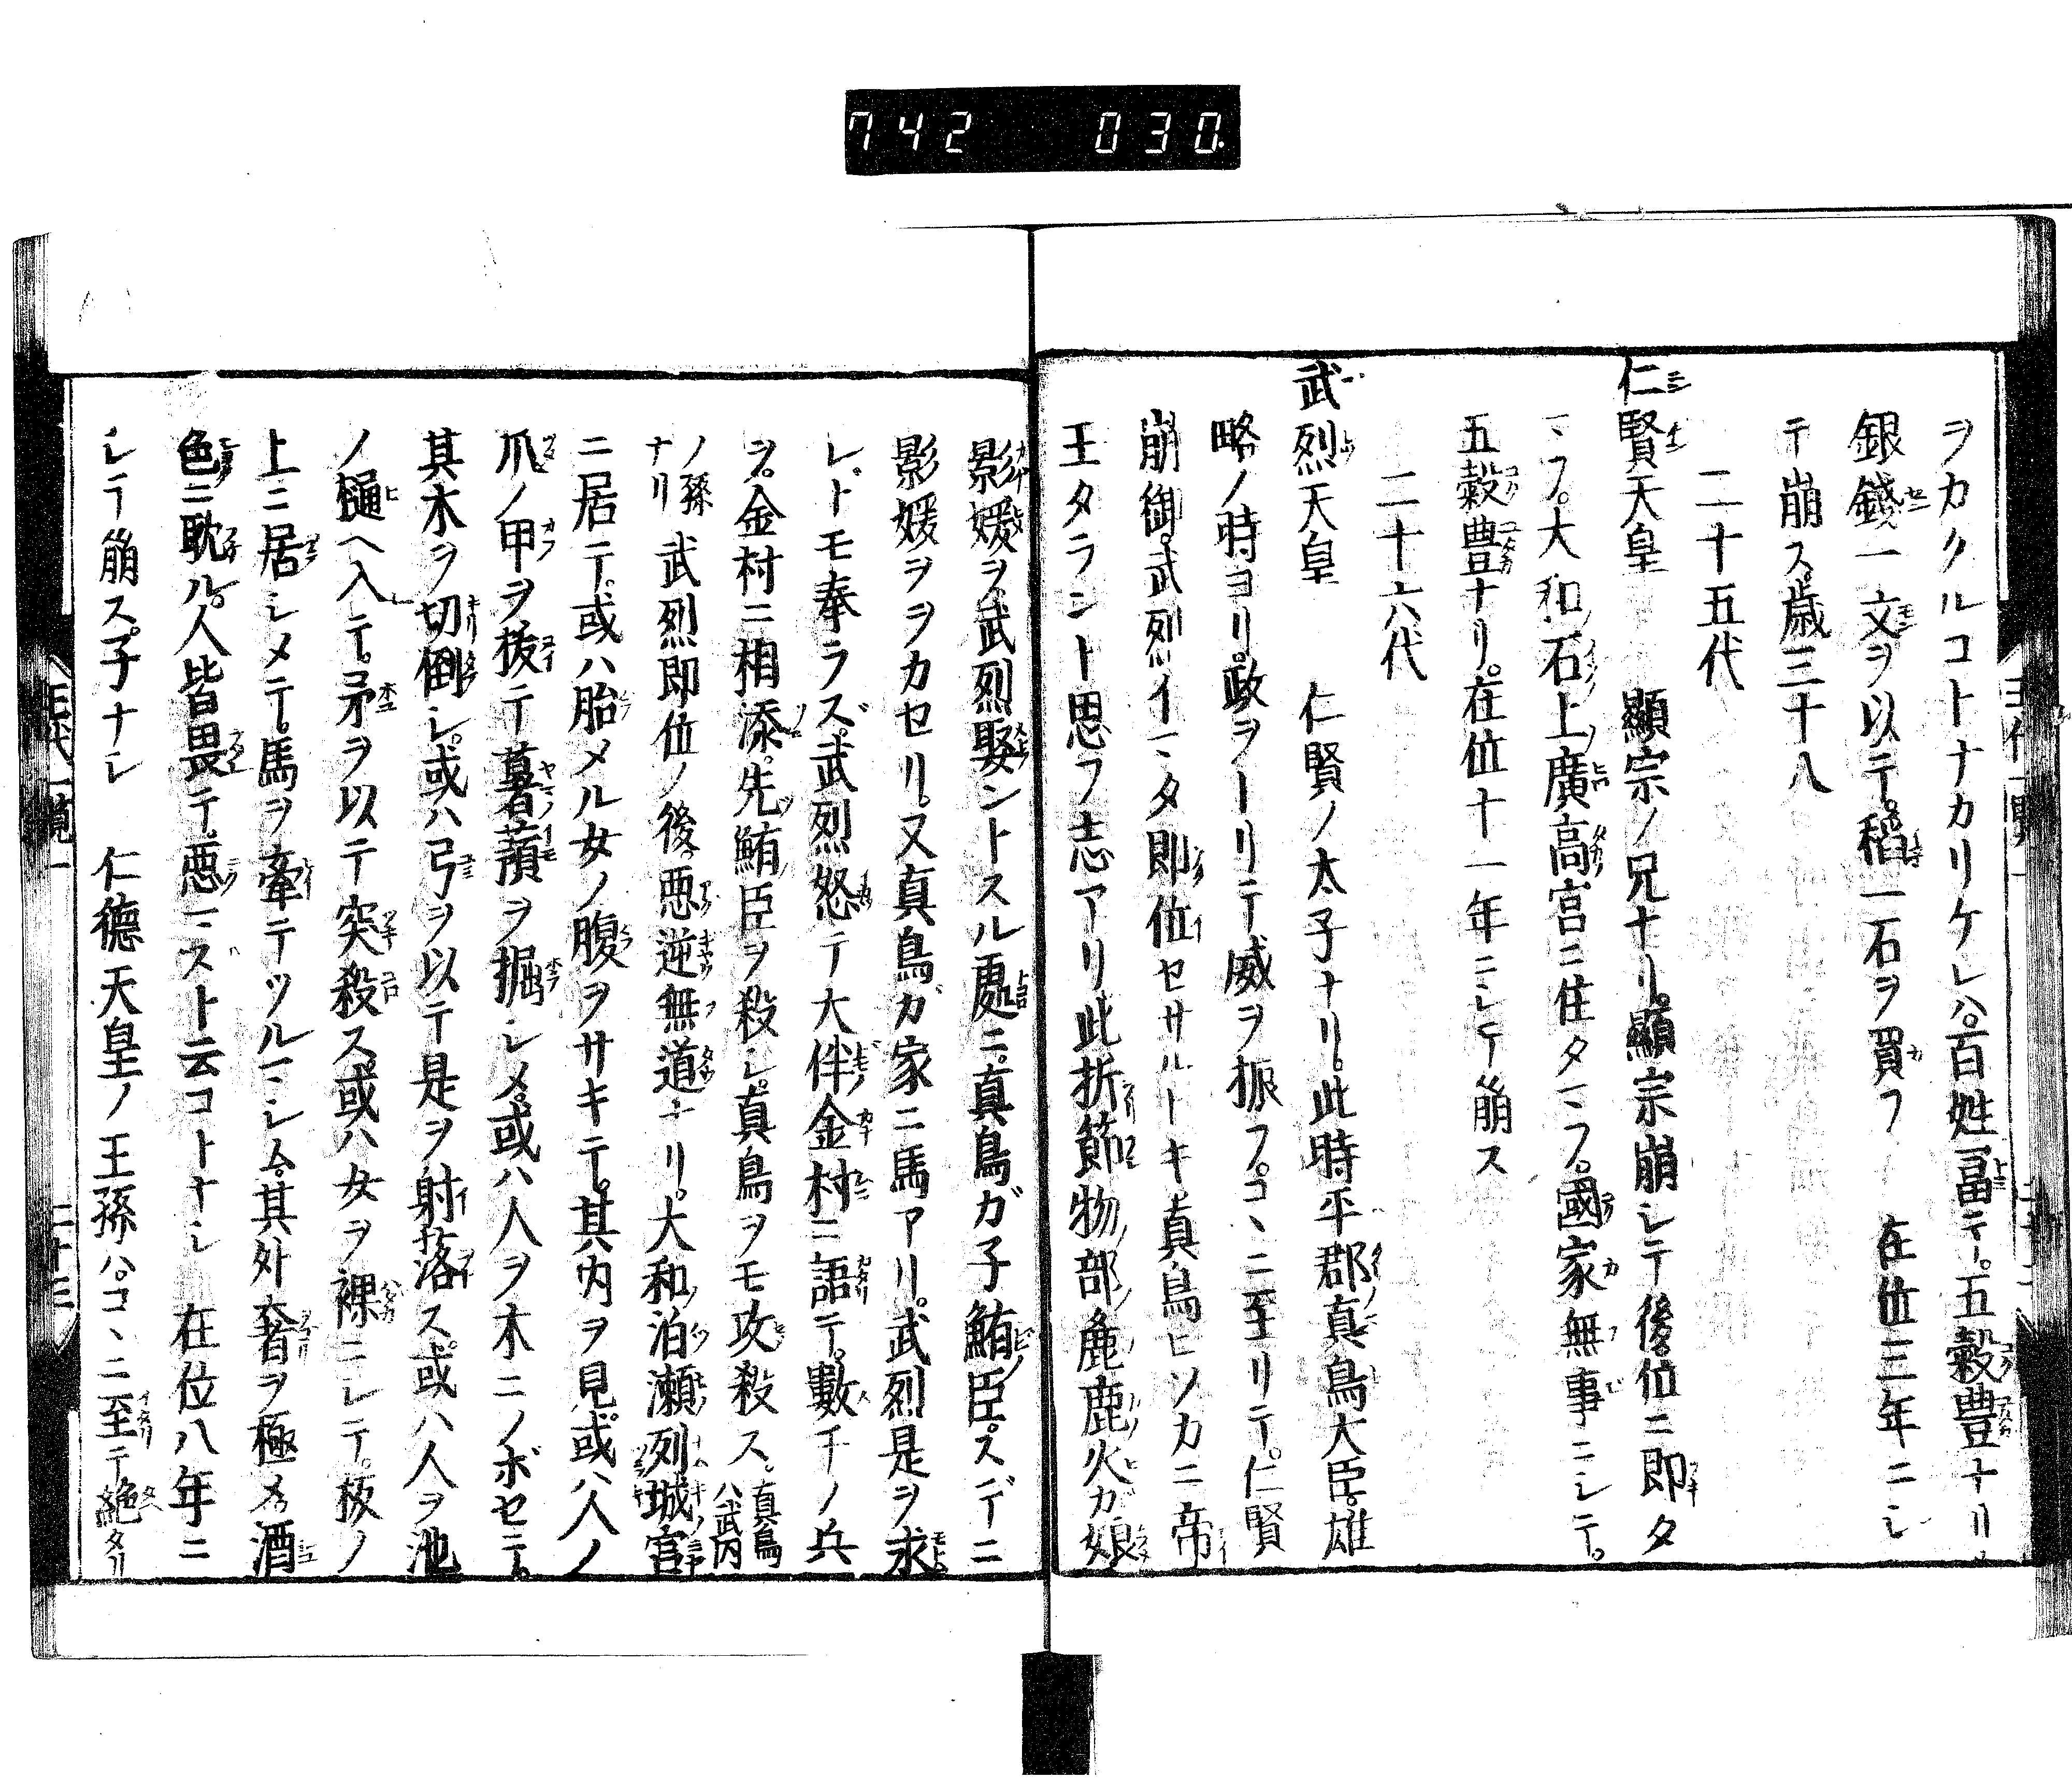 742 030
ヲカクルコトナカリケレハ。百姓冨テ。五穀豊ナリ。
銀錢一文ヲ以テ。稻一石ヲ買フ 在位三年ニシ
テ崩ス。歳三十八
二十五代
仁賢天皇 顯宗ノ兄ナリ。顯宗崩シテ後。位ニ即タ
マフ。大和石上廣高宮ニ住タマフ。國家無事ニシテ。
五穀豊ナリ。在位十一年ニシテ崩ス
二十六代
武烈天皇 仁賢ノ太子ナリ。此時平郡真鳥大臣。雄
略ノ時ヨリ。政ヲトリテ威ヲ振フ。コヽニ至リテ。仁賢
崩御。武烈イマタ即位セサルトキ真鳥ヒソカニ帝
王タラント思フ志アリ此折節物部麁鹿火カ娘
影媛ヲ武烈娶ントスル處ニ。真鳥ガ子鮪臣。スデニ
影媛ヲヲカセリ。又真鳥ガ家ニ馬アリ。武烈是ヲ求
レトモ奉ラズ。武烈怒テ大伴金村ニ語テ。數千ノ兵
ヲ。金村ニ相添。先鮪臣ヲ殺シ。真鳥ヲモ攻殺ス。真鳥ハ武内
ノ孫ナリ 武烈即位ノ後。悪逆無道ナリ。大和泊瀬列城宮
ニ居テ。或ハ胎メル女ノ腹ヲサキテ。其内ヲ見。或ハ人ノ
爪ノ甲ヲ抜テ暑蕷ヲ掘シメ。或ハ人ヲ木ニノボセテ。
其木ヲ切倒シ。或ハ弓ヲ以テ是ヲ射落ス。或ハ人ヲ池
ノ樋ヘ入テ。矛ヲ以テ突殺ス。或ハ女ヲ裸ニシテ。板ノ
上ニ居シメテ。馬ヲ牽テツルマシム。其外奢ヲ極メ。酒
色ニ耽ル。人皆畏テ。悪マスト云コトナシ 在位八年ニ
シテ崩ス。子ナシ 仁德天皇ノ王孫ハ。コヽニ至テ絶タリ
王代一覧一 二十三